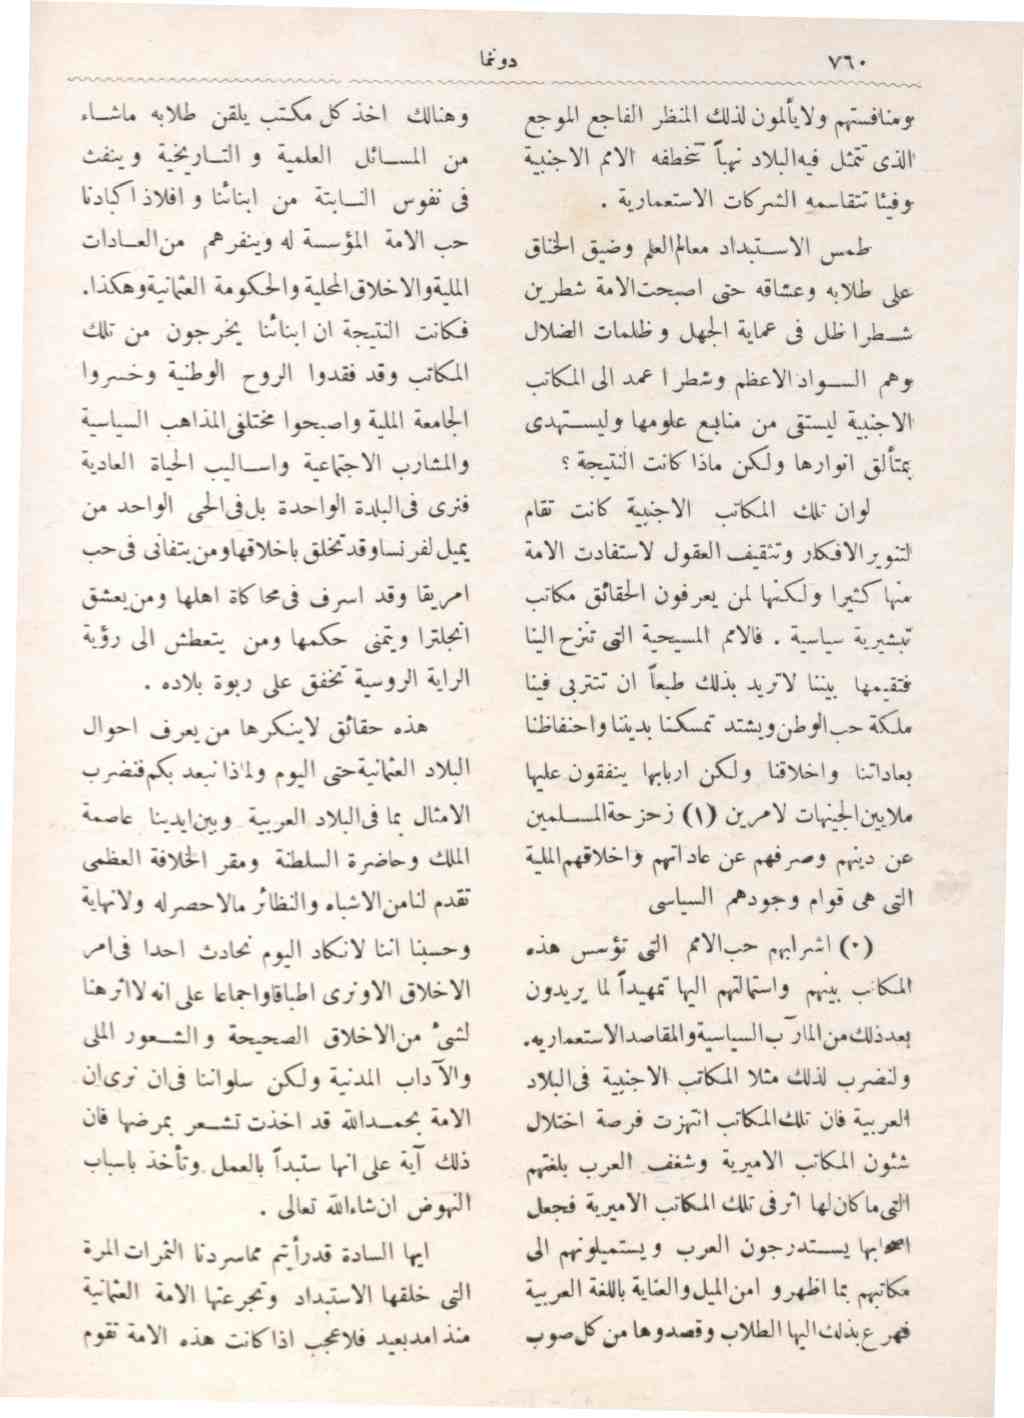 ٧٦٠
دونما
ومنافستهم ولايألمون لذلك المنظر الفاجع الموجع
الذى تتمثل فيه البلاد نهباً تتخطفه الامم الاجنبية
وفيئا تتقاسمه الشركات الاستعمارية .
طمس الاستبداد معالم العلم وضيق الخناق
على طلابه وعشاقه حتى اصبحت الامة شطرين
شطرا ظل فى عماية الجهل و ظلمات الضلال
وهم السواد الاعظم وشطرا عمد الى المكاتب
الاجنبية ليستقى من منابع علومها وليستهدى
بمتألق انوارها ولكن ماذا كانت النتيجة ؟
لوان تلك المكاتب الاجنبية كانت تقام
لتنوير الافكار وتثقيف العقول لاستفادت الامة
منها كثيرا ولكنها لمن يعرفون الحقائق مكاتب
تبشيرية سياسية . فالامم المسيحية التى تنزح الينا
فتقيمها بيننا لاتريد بذلك طبعاً ان تتربى فينا
ملكة حب الوطن ويشتد تمسكنا بديننا واحتفاظنا
بعاداتنا واخلاقنا ولكن اربابها ينفقون عليها
ملايين الجنيهات لامرين (١) زحزحة المسلمين
عن دينهم وصرفهم عن عاداتهم واخلاقهم الملية
التى هى قوام وجودهم السياسى
(٢) اشرابهم حب الامم التى تؤسس هذه
المكاتب بينهم واستمالتهم اليها تمهيداً لما يريدون
بعد ذلك من المآرب السياسية والمقاصد الاستعماريه.
ولنضرب لذلك مثلا المكاتب الاجنبية فى البلاد
العربية فان تلك المكاتب انتهزت فرصة اختلال
شئون المكاتب الاميرية وشغف العرب بلغتهم
التى ماكان لها اثر فى تلك المكاتب الاميرية فجعل
اصحابها يستدرجون العرب ويستميلونهم الى
مكاتبهم بما اظهروا من الميل والعناية باللغة العربية
فهرع بذلك اليها الطلاب وقصدوها من كل صوب
وهنالك اخذ كل مكتب يلقن طلابه ماشاء
من المسائل العلمية و التاريخية وينفث
فى نفوس النابتة من ابنائنا و افلاذ اكبادنا
حب الامة المؤسسة له وينفرهم من العادات
الملية والاخلاق المحلية والحكومة العثمانية وهكذا.
فكانت النتيجة ان ابنائنا يخرجون من تلك
المكاتب وقد فقدوا الروح الوطنية وخسروا
الجامعة الملية واصبحوا مختلفى المذاهب السياسية
والمشارب الاجتماعية واساليب الحياة العادية
فنرى فى البلدة الواحدة بل فى الحى الواحد من
يميل لفرنسا وقد تخلق باخلاقها ومن يتفانى فى حب
امريقا وقد اسرف فى محاكاة اهلها ومن يعشق
انجلترا ويتمنى حكمها ومن يتعطش الى رؤية
الراية الروسية تخفق على ربوة بلاده .
هذه حقائق لاينكرها من يعرف احوال
البلاد العثمانية حتى اليوم ولماذا نبعد بكم فنضرب
الامثال بما فى البلاد العربية وبين ايدينا عاصمة
الملك وحاضرة السلطنة ومقر الخلافة العظمى
تقدم لنا من الاشباه والنظائر مالاحصر له ولانهاية
وحسبنا اننا لانكاد اليوم نحادث احدا فى امر
الاخلاق الاونرى اطباقا واجماعا على انه لااثر هنا
لشىء من الاخلاق الصحيحة والشعور الملى
والآداب المدنية ولكن سلواننا فى ان نرى ان
الامة بحمدالله قد اخذت تشعر بمرضها فان
ذلك آية على انها ستبدأ بالعمل وتأخذ باسباب
النهوض ان شاءالله تعالى .
ايها السادة قد رأيتم مما سردنا الثمرات المرة
التى خلقها الاستبداد وتجرعتها الامة العثمانية
منذ امد بعيد فلاعجب اذا كانت هذه الامة تقوم